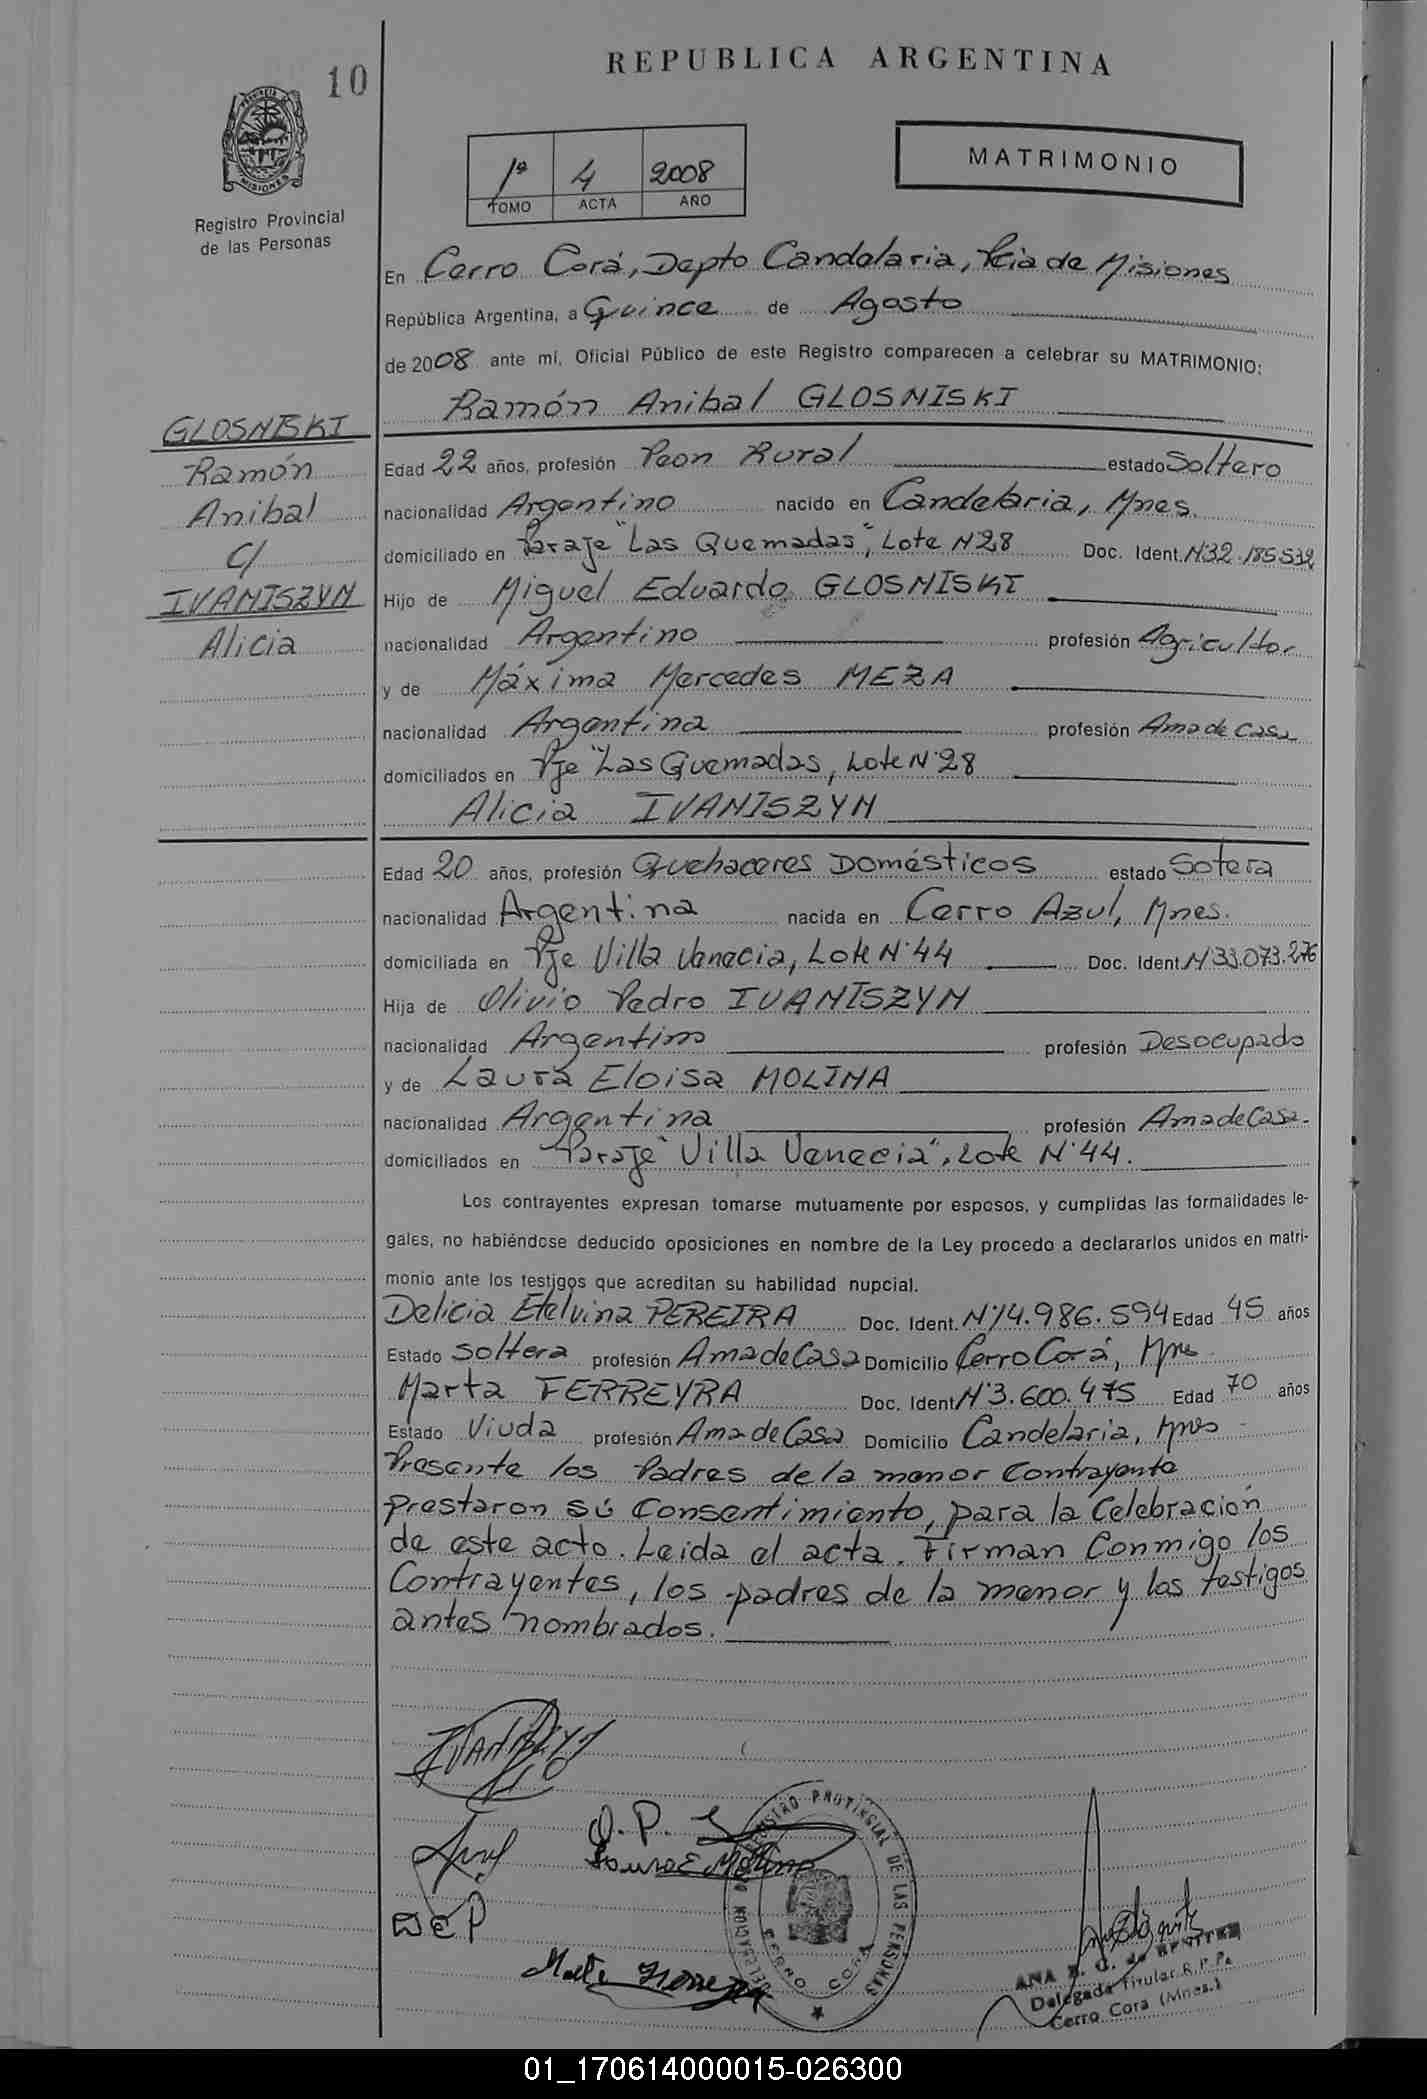 10
REPUBLICA ARGENTINA
PROVINCIA DE
MISIONES
Registro Provincial
de las Personas
1º 4 2008
TOMO ACTA AÑO
MATRIMONIO
En Cerro Corá, Depto Candelaria, Pcia de Misiones
República Argentina, a Quince de Agosto
de 2008 ante mí, Oficial Público de este Registro comparecen a celebrar su MATRIMONIO:
Ramón Anibal GLOSNISKI
GLOSNISKI
Ramón
Anibal
C/
IVANISZYN
Alicia
Edad 22 años, profesión Peon Rural estado Soltero
nacionalidad Argentino nacido en Candelaria, Mnes.
domiciliado en Paraje "Las Quemadas", Lote N28 Doc. Ident. Nº32.185.532
Hijo de Miguel Eduardo GLOSNISKI
nacionalidad Argentino profesión Agricultor
y de Máxima Mercedes MEZA
nacionalidad Argentina profesión Ama de Casa
domiciliados en Pje "Las Quemadas, Lote Nº28
Alicia IVANISZYN
Edad 20 años, profesión Quehaceres Domésticos estado Sotera
nacionalidad Argentina nacida en Cerro Azul, Mnes.
domiciliada en Pje Villa Venecia, Lote Nº44 Doc. Ident. Nº33.073.276
Hija de Olivio Pedro IVANISZYN
nacionalidad Argentino profesión Desocupado
y de Laura Eloisa MOLINA
nacionalidad Argentina profesión Ama de Casa.
domiciliados en Paraje "Villa Venecia", Lote Nº44.
Los contrayentes expresan tomarse mutuamente por esposos, y cumplidas las formalidades le-
gales, no habiéndose deducido oposiciones en nombre de la Ley procedo a declararlos unidos en matri-
monio ante los testigos que acreditan su habilidad nupcial.
Delicia Etelvina PEREIRA Doc. Ident. Nº14.986.594 Edad 45 años
Estado Soltera profesión Ama de Casa Domicilio Cerro Corá, Mnes
Marta FERREYRA Doc. Ident. Nº3.600.475 Edad 70 años
Estado Viuda profesión Ama de Casa Domicilio Candelaria, Mnes
Presente los Padres de la menor Contrayente
prestaron sú Consentimiento, para la Celebración
de este acto. Leida el acta. Firman Conmigo los
Contrayentes, los padres de la menor y los testigos
antes nombrados.
O. P. I
Laura E Molina
D E P
Marta Ferreyra
DELEGACION REGISTRO PROVINCIAL DE LAS PERSONAS
CERRO CORA
ANA E. G. de BENITEZ
Delegada Titular R.P.P.
Cerro Cora (Mnes.)
01_170614000015-026300